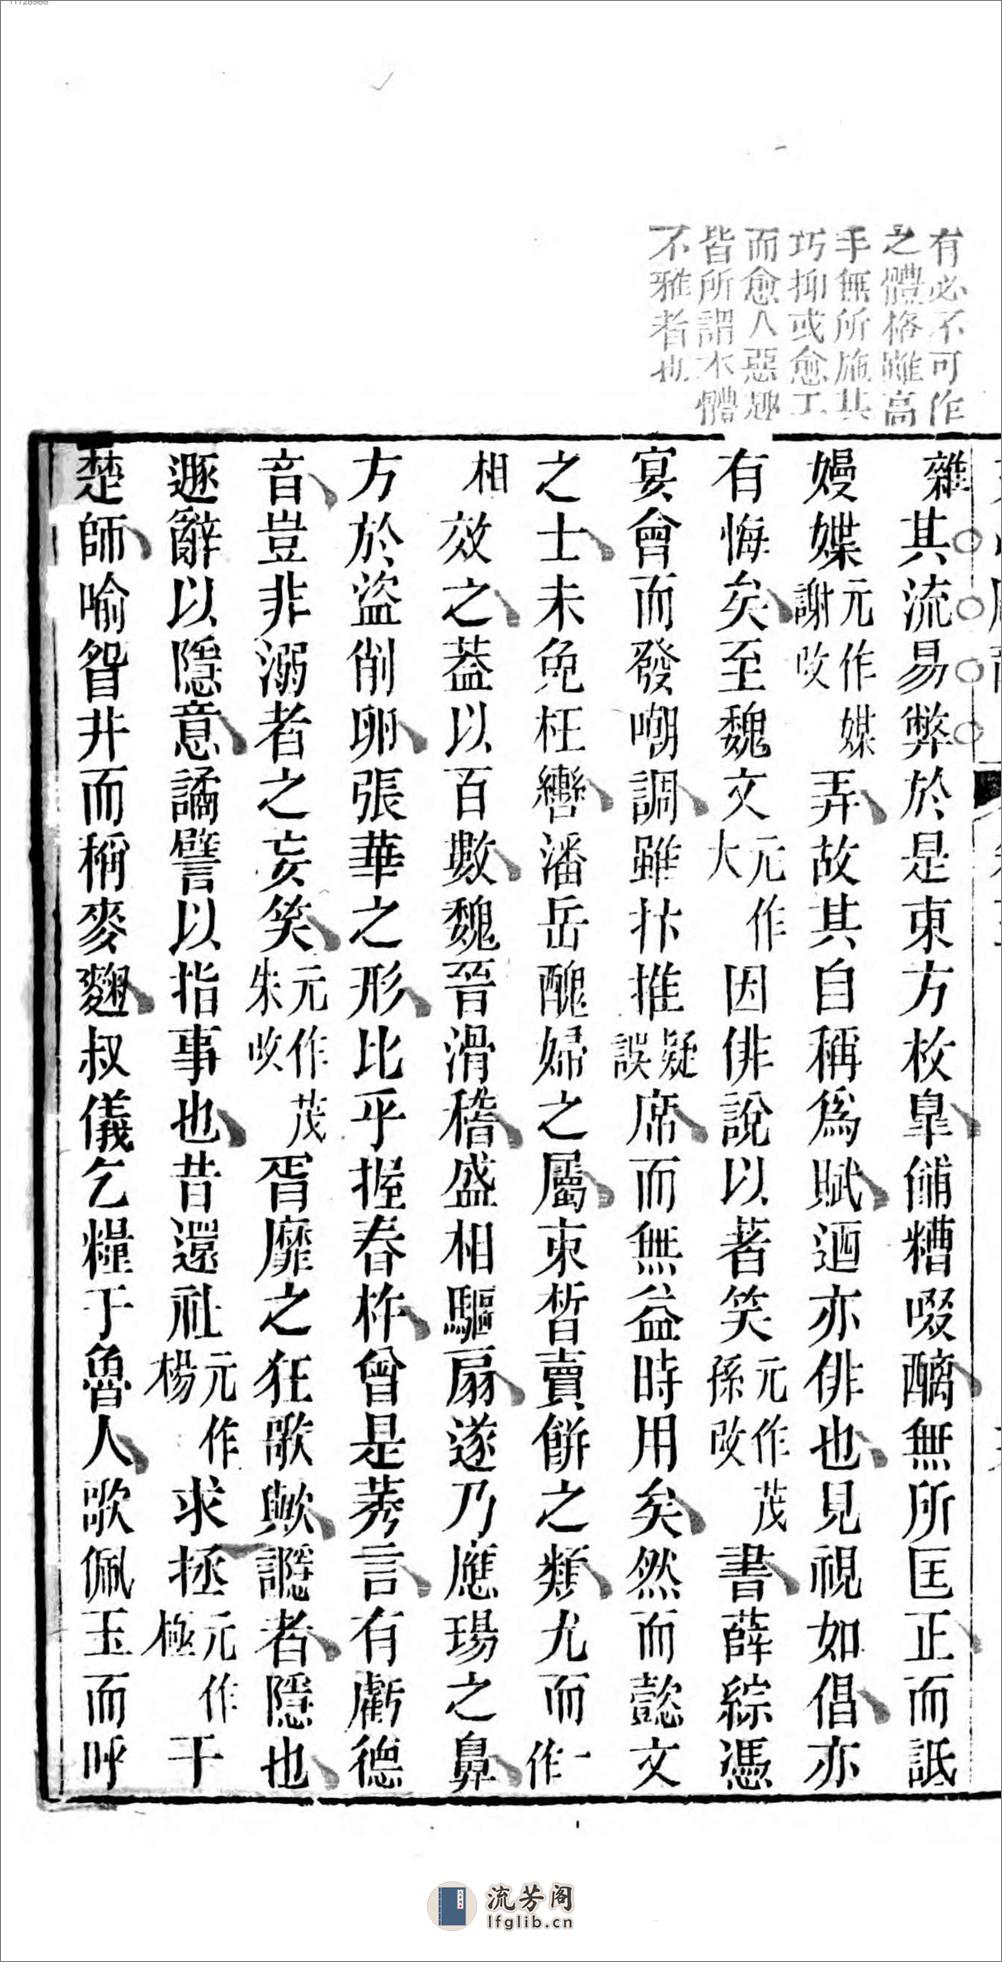 有必不可作
之體格雖高
手無所施其
巧抑或愈工
而愈人惡趣
皆所謂本體
不雅者也
雜其流易弊於是東方枚臯餔糟啜醨無所匡正而詆
嫚媟元作媒謝改弄故其自稱爲賦迺亦俳也見視如倡亦
有悔矣至魏文元作大因俳說以著笑元作茂孫改書薛綜憑
宴會而發嘲調雖抃推疑誤席而無益時用矣然而懿文
之士未免枉轡潘岳醜婦之屬束晳賣餅之類尤而一作
相效之葢以百數魏晉滑稽盛相驅扇遂乃應瑒之鼻
方於盜削卵張華之形比乎握舂杵曾是莠言有虧德
音豈非溺者之妄笑元作茂朱改胥靡之狂歌歟讔者隱也
遯辭以隱意譎譬以指事也昔還社元作楊求拯元作極于
楚師喻眢井而稱麥麴叔儀乞糧于魯人歌佩玉而呼
流芳阁
lfglib.cn